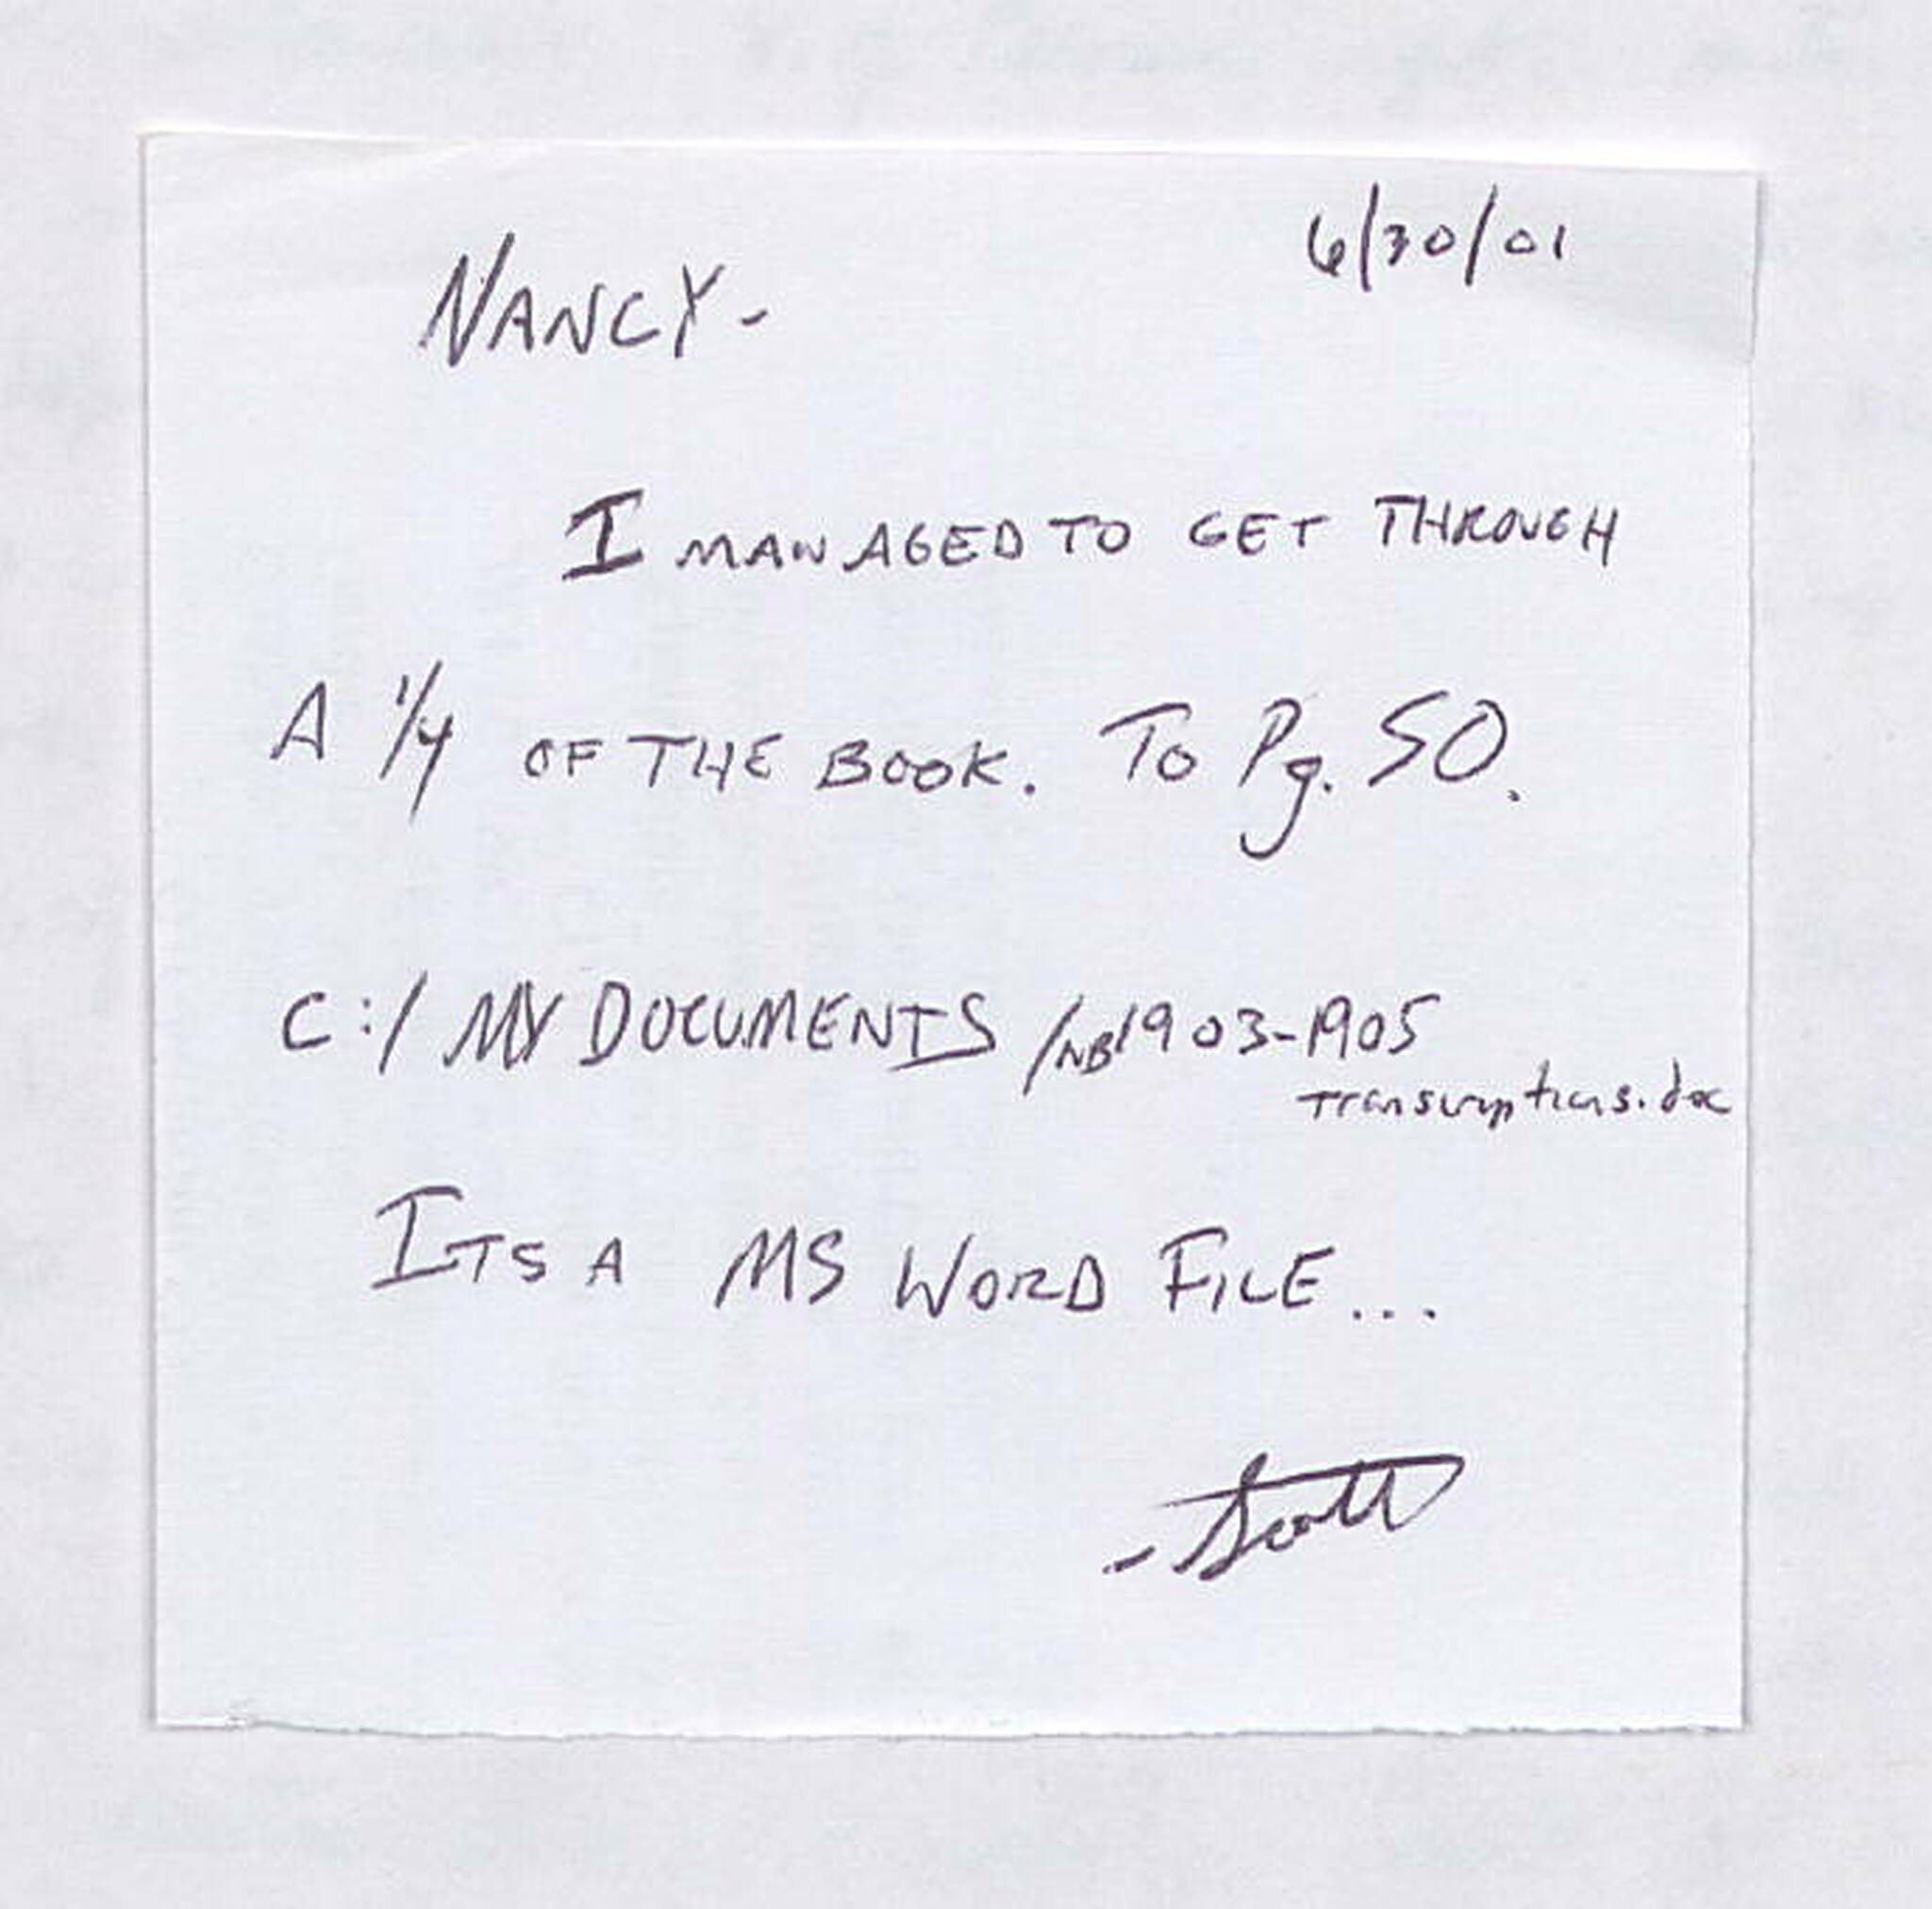 6/30/01
NANCY-
I MANAGED TO GET THROUGH
A 1/4 OF THE BOOK. To Pg. 50.
C:/ MY DOCUMENTS /NB1903-1905
transcriptions.doc
ITS A MS WORD FILE...
-Scott